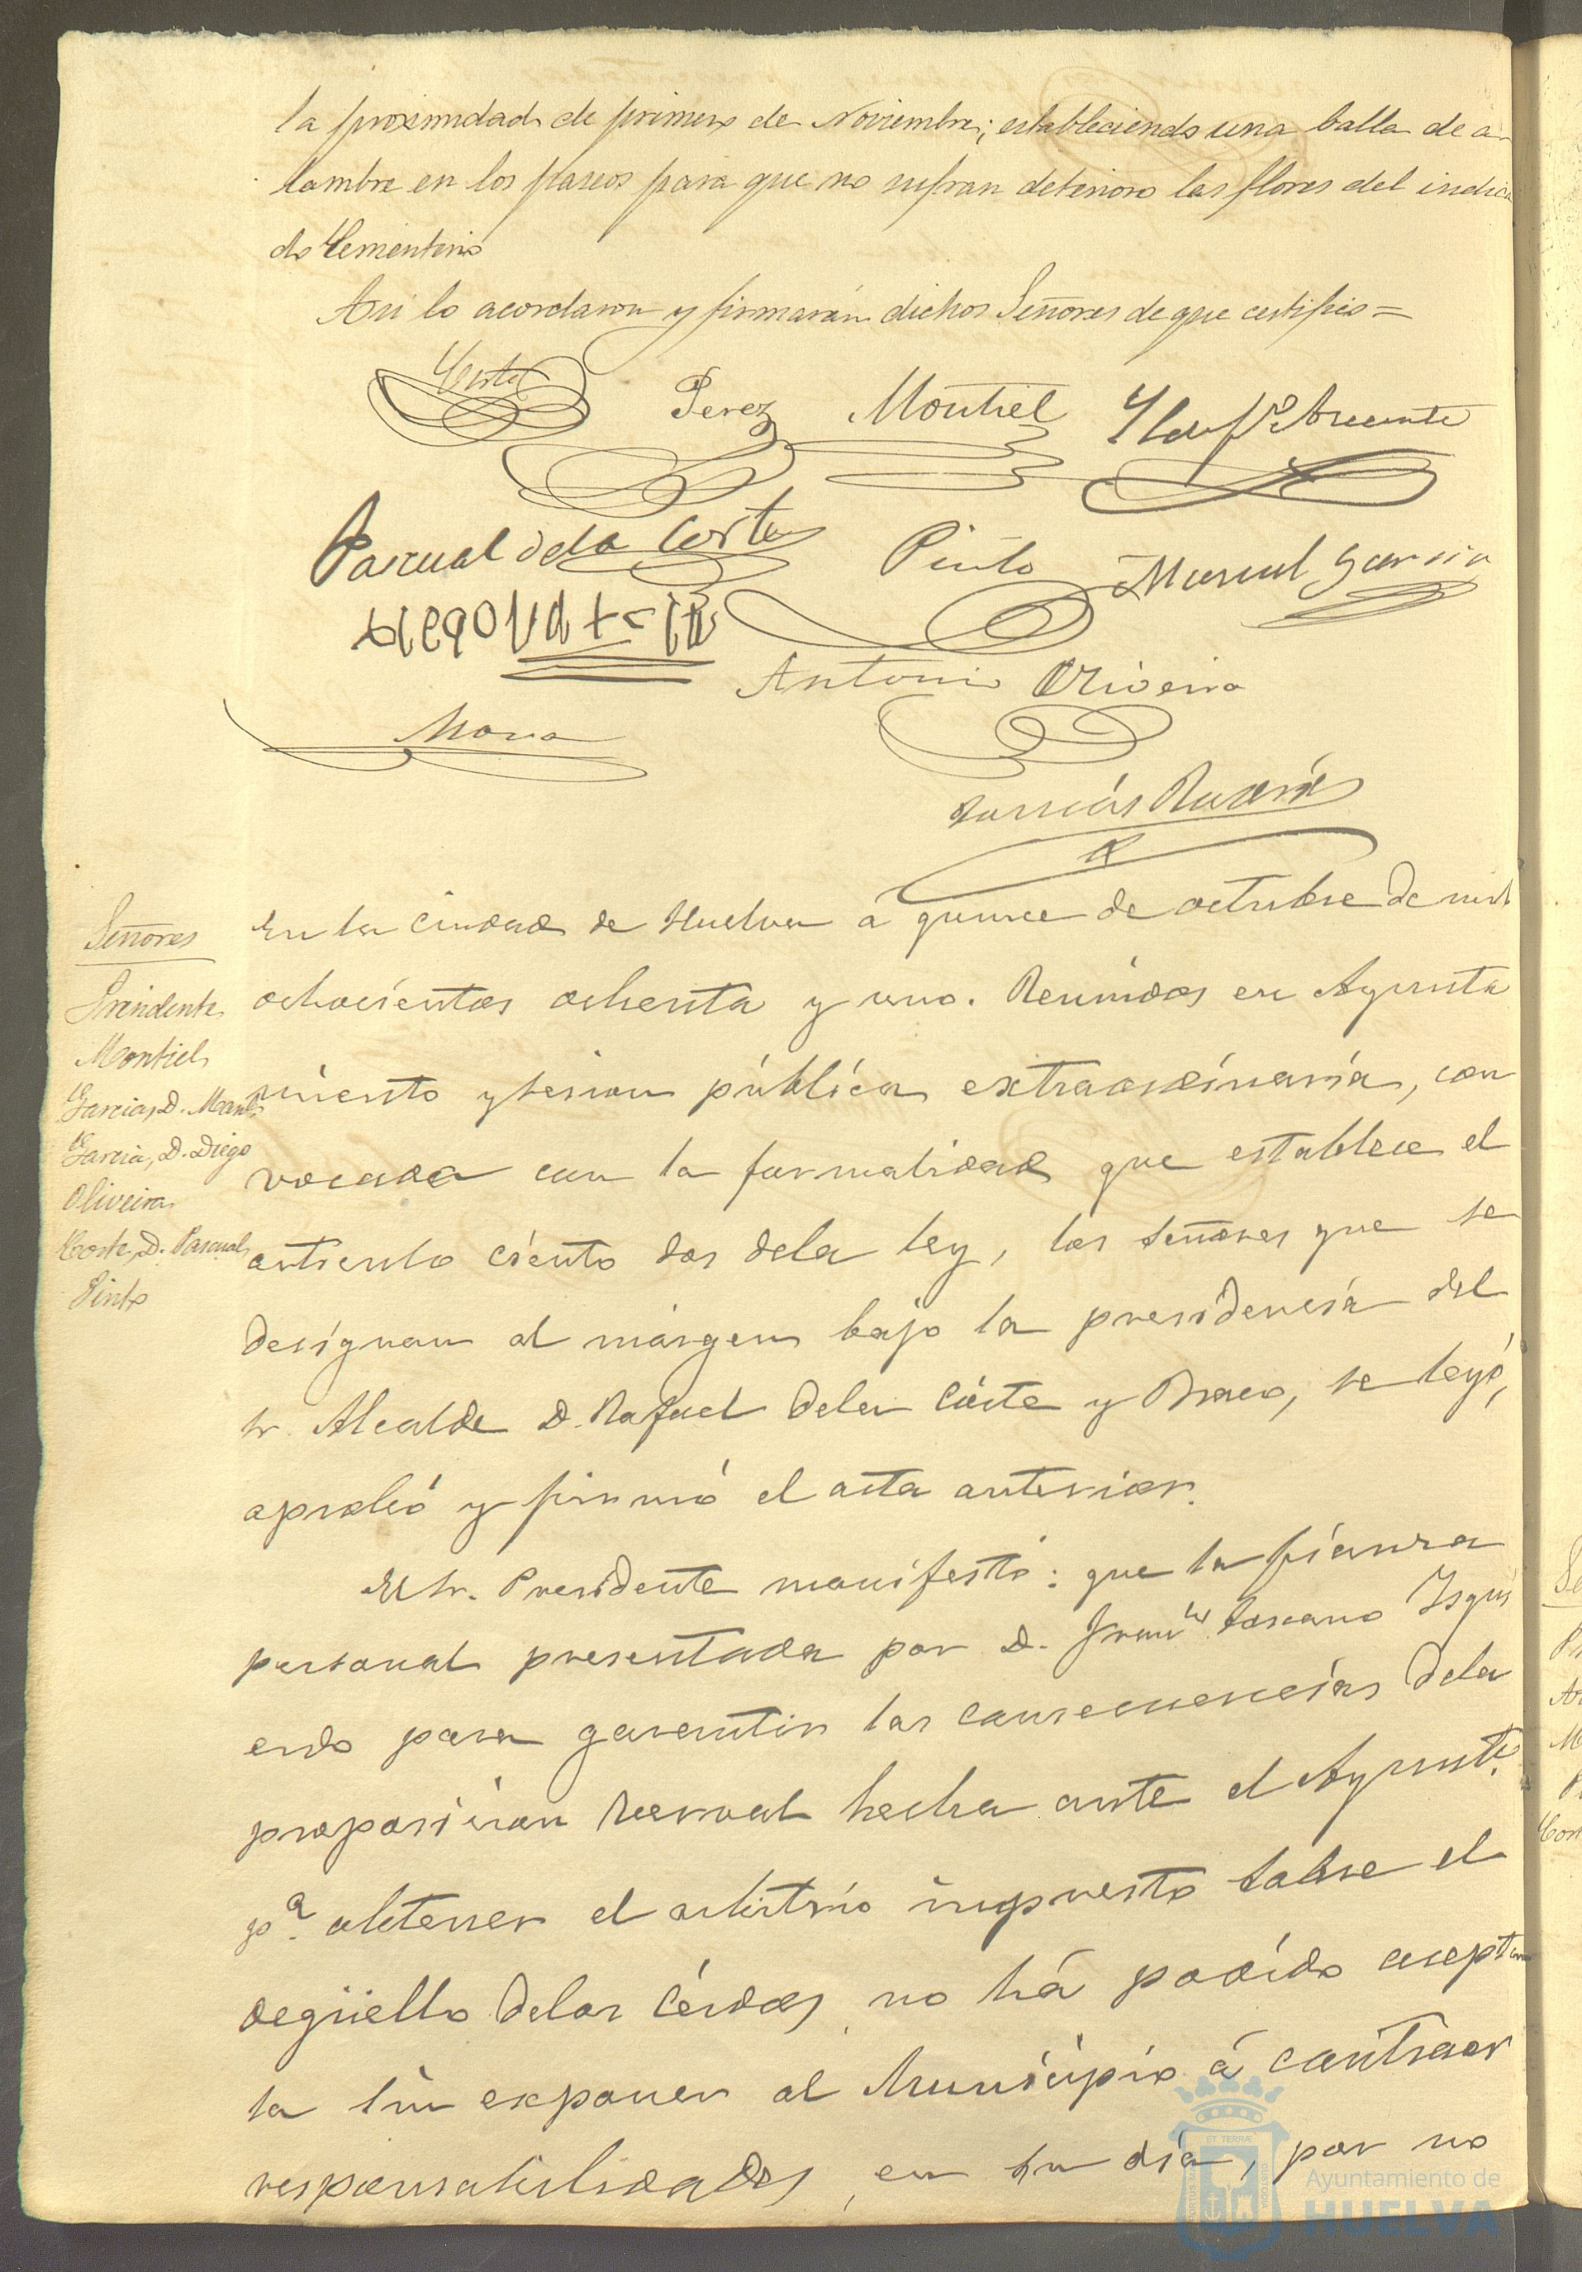 la proximidad de primero de Noviembre; estableciendo una balla de a
lambre en los paseos para que no sufran deterioro las flores del indica
do Cementerio
Asi lo acordaron y firmarán dichos Señores de que certifico=
Corte Perez Montiel Yldefso Arecente
Pascual de la Corte Pinto Manuel Garcia
Antonio Oliveira
Mora
Señores
Presidente
Montiel
Garcia, D. Manl.
Garcia, D. Diego
Oliveira
Corte, D. Pascual
Pinto
En la Ciudad de Huelva á quince de octubre de mil
ochocientos ochenta y uno. Reunidos en Ayunta
miento y sesion pública extraordinaria, con
vocada con la formalidad que establece el
articulo ciento dos dela ley, los señores que se
designan al márgen bajo la presidencia del
Sr. Alcalde D. Rafael dela Corte y Bravo, se leyó,
aprobó y firmó el acta anterior.
El Sr. Presidente manifestó: que la fianza
personal presentada por D. Franco Toscano Izqui
erdo para garantir las consecuencias dela
proposicion verval hecha ante el Ayuntto.
pa. obtener el arbitrio impuesto sobre el
degüello delos Cérdos, no há podido aceptar
la sin exponer al Municipio á contraer
responsabilidades, en su dia, por no
ET TERRÆ
Ayuntamiento de
HUELVA